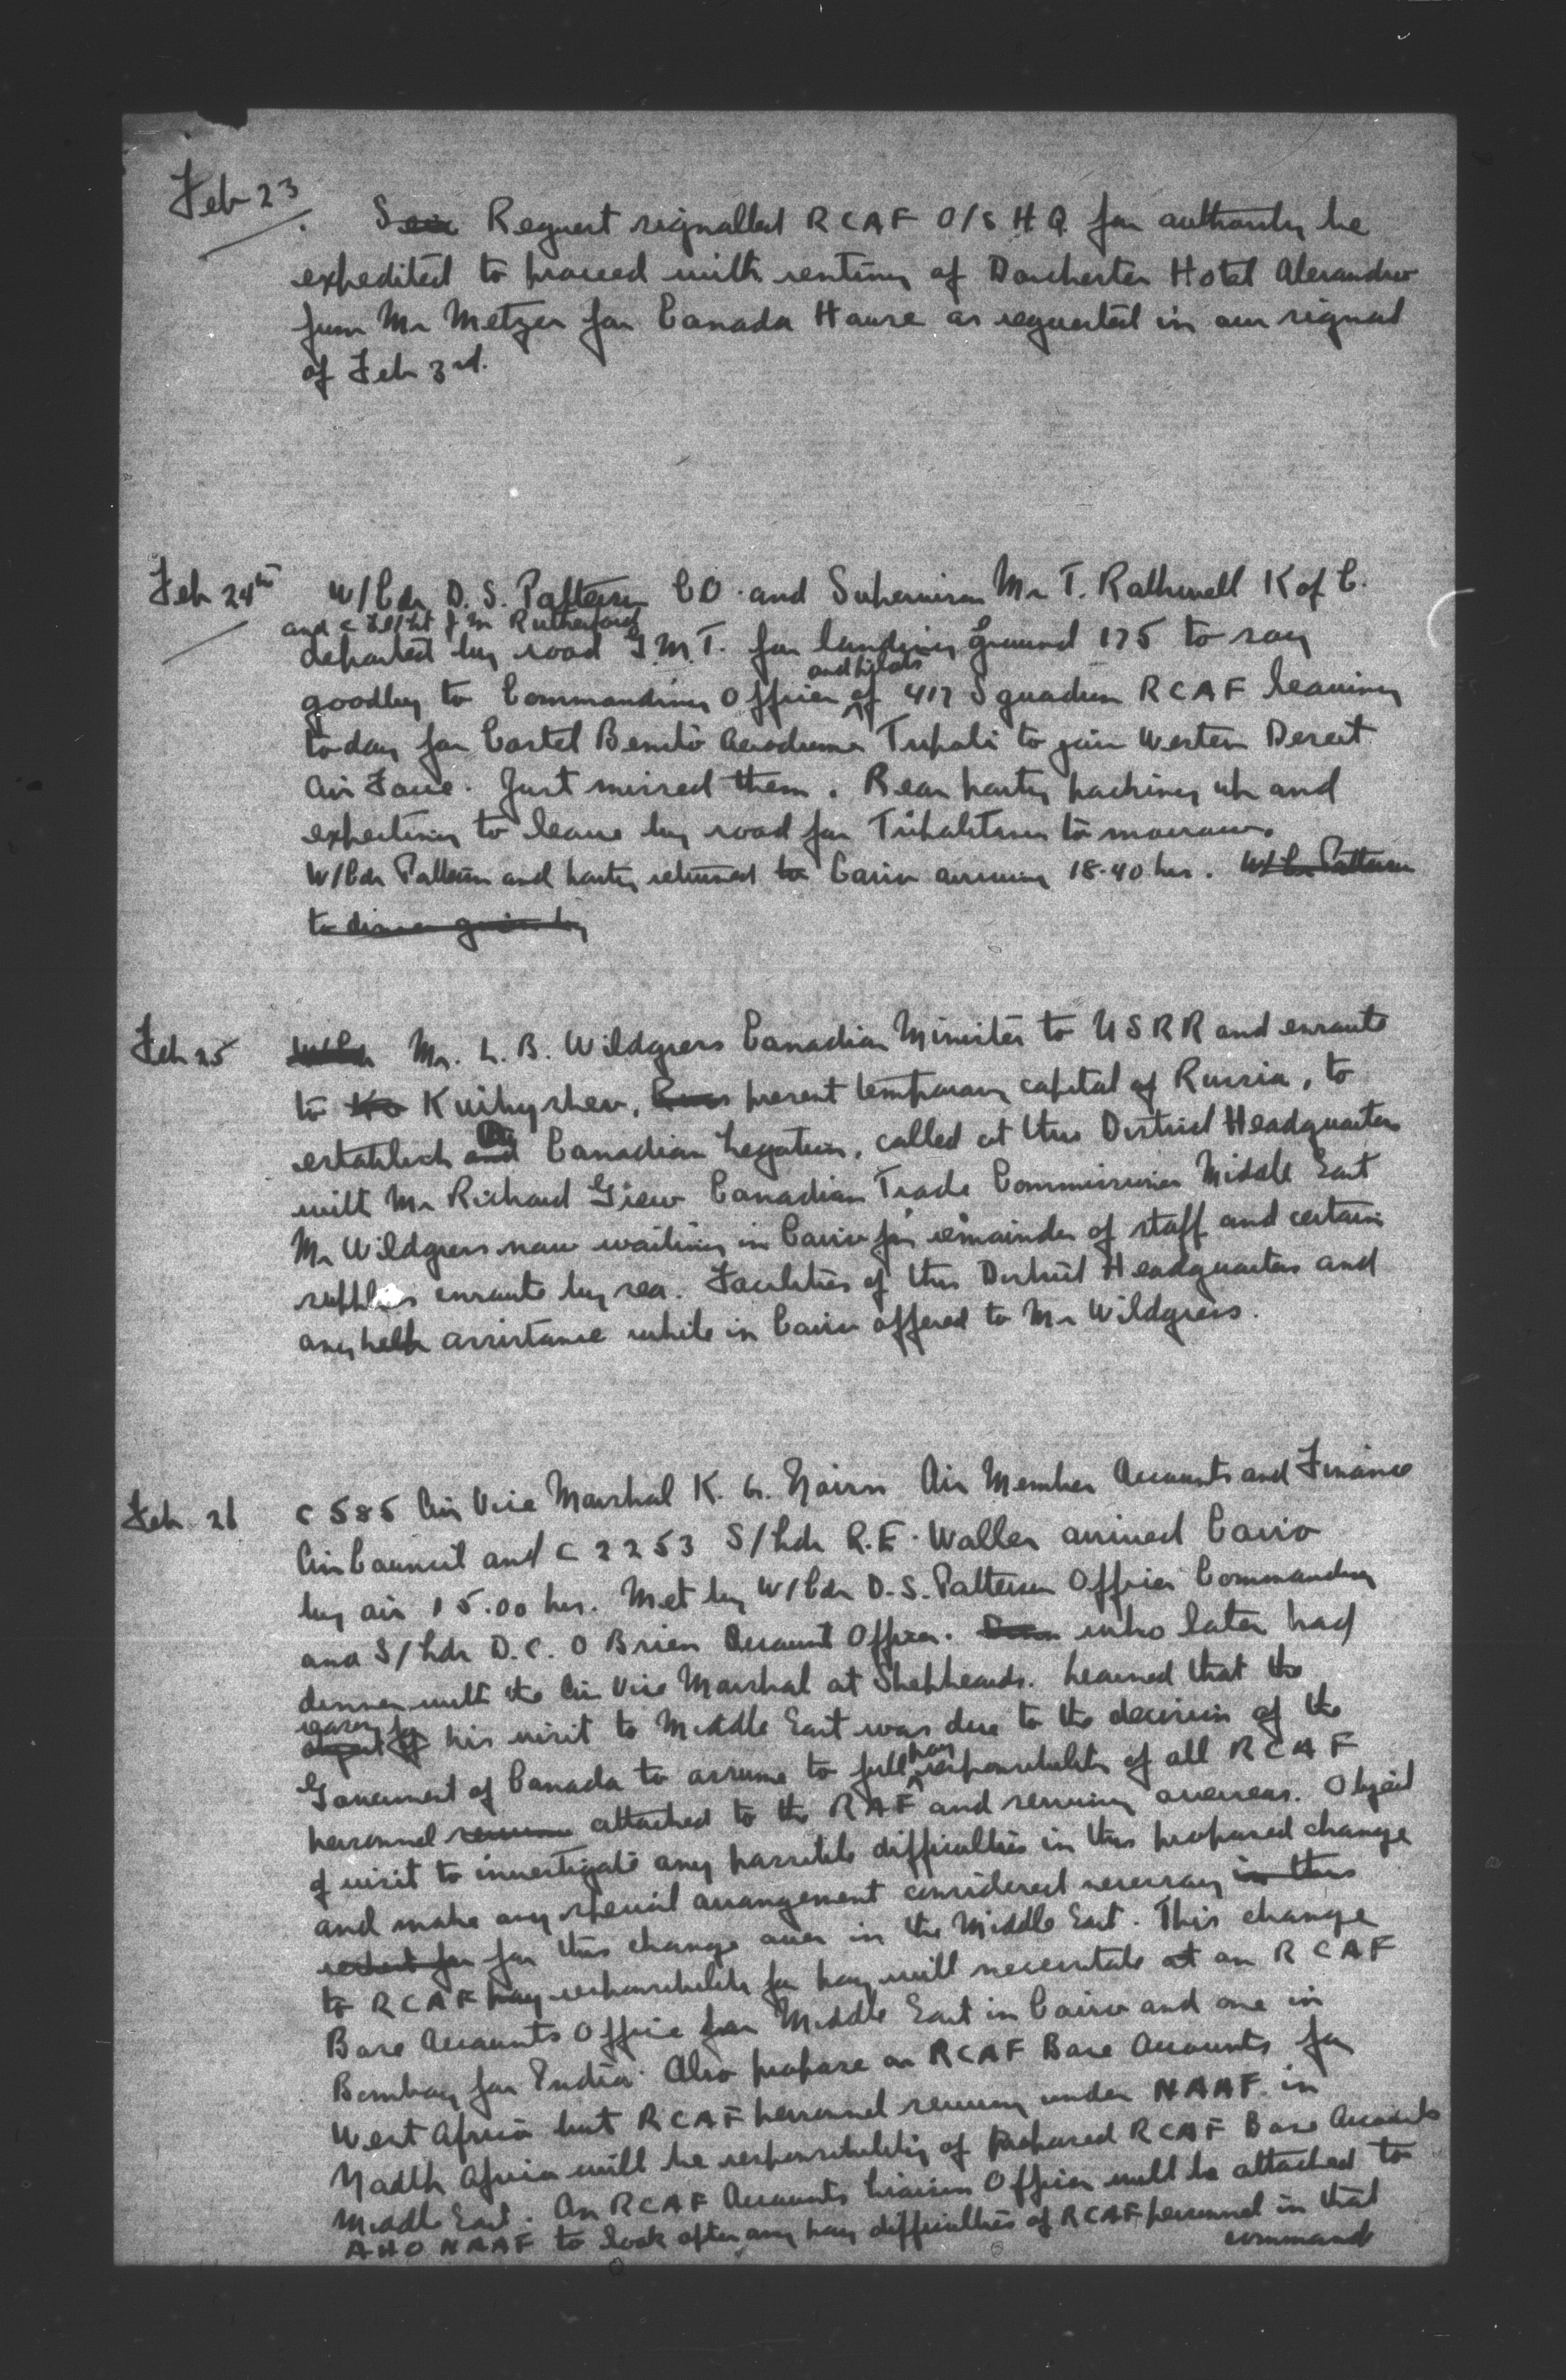 Feb 23. Request signalled RCAF O/S HQ for authority be
expedited to proceed with renting of Dorchester Hotel Alexandria
from Mr Metzger for Canada House as requested in our signal
of Feb 3rd.
Feb 24th W/Cdr D. S. Patterson CO. and Supervisor Mr T. Rathwell K of C.
and C F/Lt J M Rutherford
departed by road G.M.T. for landing ground 175 to say
goodbye to Commanding Officer and pilots of 417 Squadron RCAF leaving
today for Castel Benito Aerodrome Tripoli to join Western Desert
Air Force. Just missed them. Rear party packing up and
expecting to leave by road for Tripolitania to morrow.
W/Cdr Patterson and party returned to Cairo arriving 18.40 hrs. W/C Patterson
to dinner given by
Feb 25 W/Cdr Mr. L. B. Wildgress Canadian Minister to USRR and enroute
to Kuibyshev, present temporary capital of Russia, to
establish Canadian Legation, called at this District Headquarters
with Mr Richard Grew Canadian Trade Commissioner Middle East
Mr Wildgress now waiting in Cairo for remainder of staff and certain
supplies enroute by sea. Facilities of this District Headquarters and
any help assistance while in Cairo offered to Mr Wildgress.
Feb 26 C 585 Air Vice Marshal K. G. Nairn Air Member Accounts and Finance
Air Council and C 2253 S/Ldr R.E. Waller arrived Cairo
by air 15.00 hrs. Met by W/Cdr D.S. Patterson Officer Commanding
and S/Ldr D.C. O Brien Account Officer. who later had
dinner with the Air Vice Marshal at Shepheards. Learned that the
reason for object of his visit to Middle East was due to the decision of the
Goverment of Canada to assume to full pay responsibility of all RCAF
personnel attached to the RAF and serving overseas. Object
of visit to investigate any possible difficulties in this proposed change
and make any special arrangement considered necessary in this
for this change over in the Middle East. This change
to RCAF pay responsibility for pay will necessitate at an RCAF
Base Accounts Office for Middle East in Cairo and one in
Bombay for India. Also propose an RCAF Base Accounts for
West Africa but RCAF personnel serving under NAAF in
North Africa will be responsibility of proposed RCAF Base Accounts
Middle East. An RCAF Accounts Liaison Officer will be attached to
AHQ NAAF to look after any pay difficulties of RCAF personnel in that
command